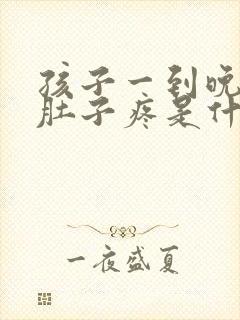 孩子一到晚
肚子疼是什
一夜盛夏